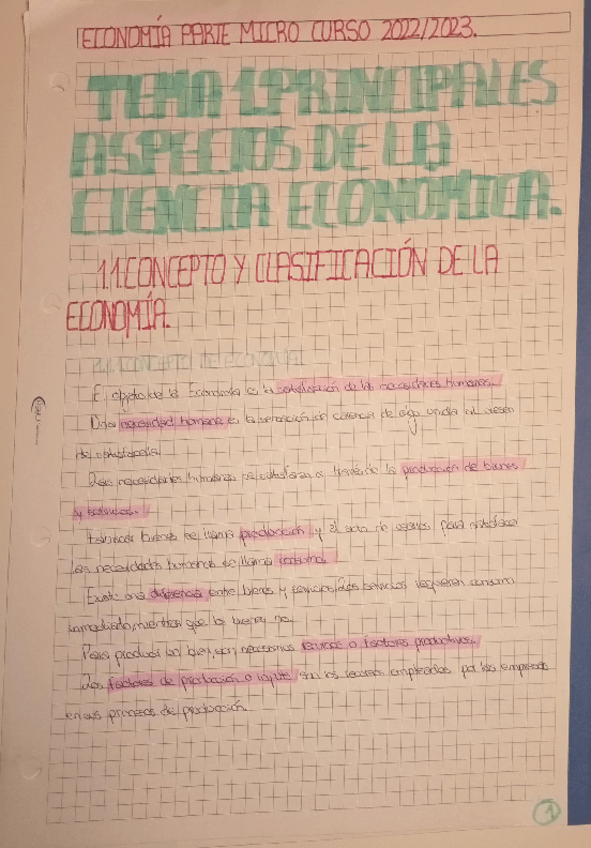 ECONOMÍA PARTE MICRO CURSO 2022/2023.
TEMA 1. PRINCIPALES
ASPECTOS DE LA
CIENCIA ECONOMICA.
1.1. CONCEPTO Y CLASIFICACIÓN DE LA
ECONOMÍA.
1.1.1. CONCEPTO DE ECONOMIA
El objeto de la Economía es la satisfacción de las necesidades humanas.
Una necesidad humana es la sensación de carencia de algo unida al deseo
de satisfacerla.
Las necesidades humanas se satisfacen a través de la producción de bienes
y servicios.
bienes se llama producción y el acto de usarlos para satisfacer
las necesidades humanas se llama consumo.
Existe una diferencia entre bienes y servicios, los servicios requieren consumo
inmediato, mientras que los bienes no.
Para producir un bien, son necesarios recursos o factores productivos.
Los factores de producción o inputs son los recursos empleados por las empresas
en sus procesos de producción.
1